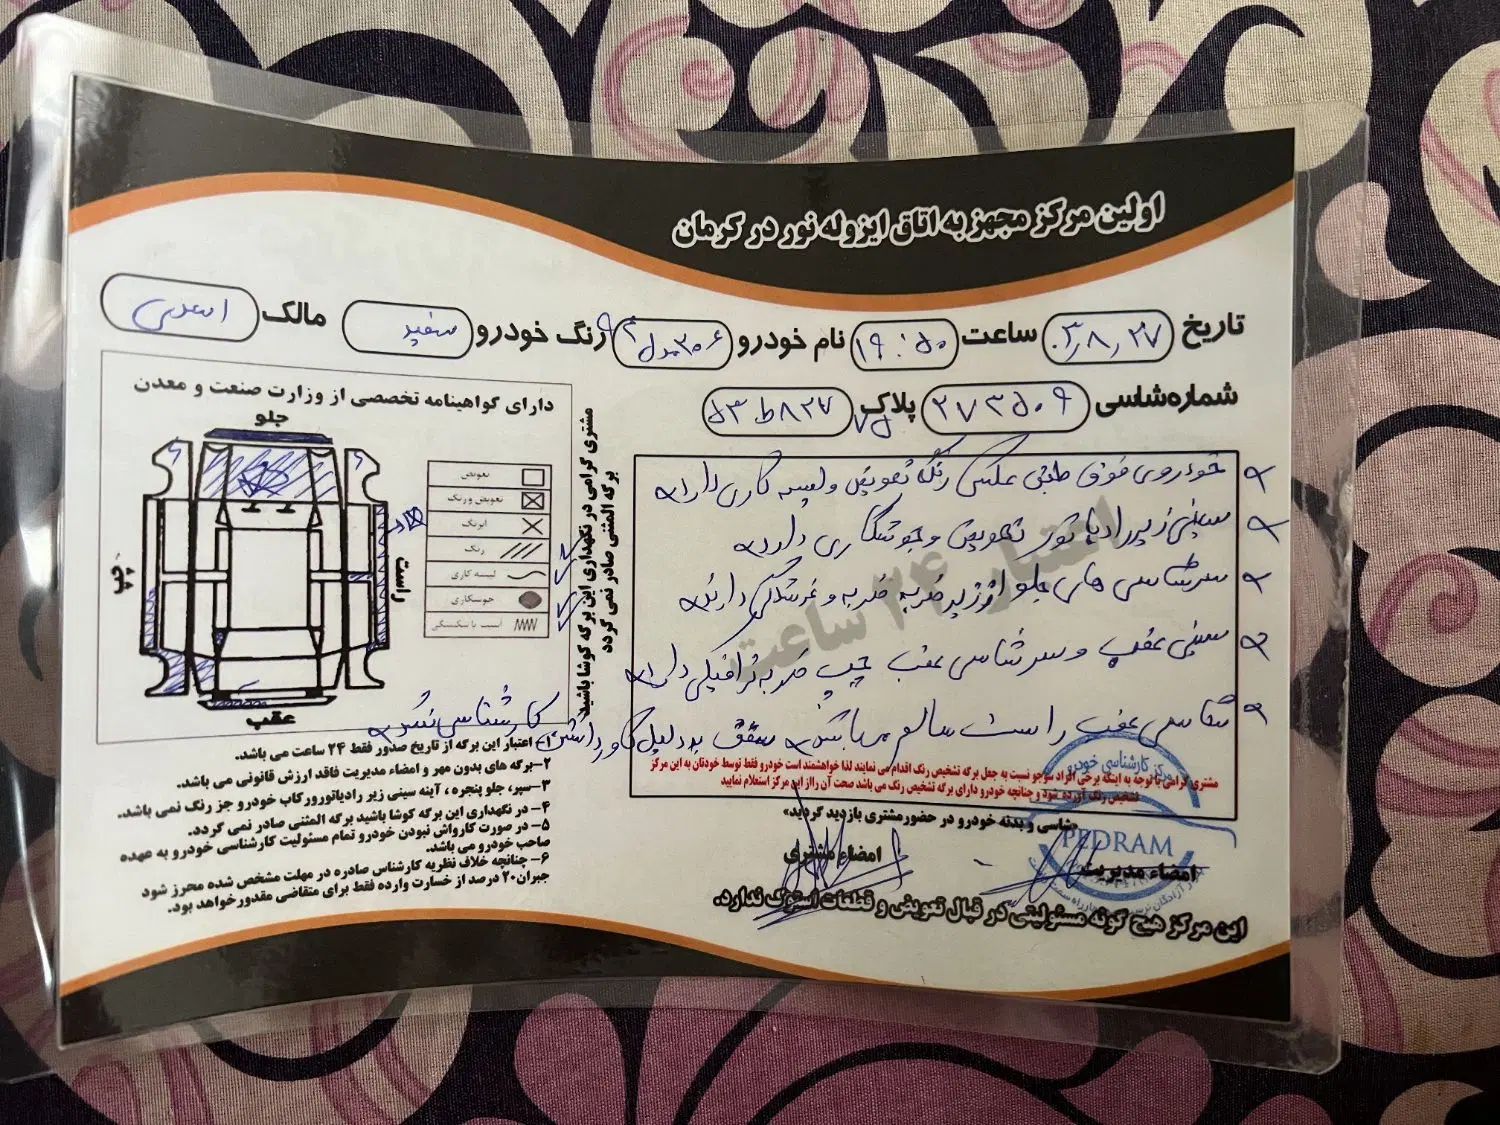 اولین مرکز مجهز به اتاق ایزوله نور در کرمان
تاریخ ۰۳٫۸٫۲۷ ساعت ۱۹:۵۰ نام خودرو ۲۰۶ مدل رنگ خودرو سفید مالک
شماره شاسی ۲۷۳۵۰۹ پلاک
خودروی فوق طبق عکس رنگ تعویض و لیسه کاری دارد
سینی زیر رادیاتور تعویض و جوشکاری دارد
سر شاسی های جلو از زیر ضربه ضربه و خراشیدگی دارند
سینی عقب و سر شاسی عقب چپ ضربه ترافیکی دارد
شاسی عقب راست سالم میباشد سقف به دلیل کاور داشتن کارشناسی نشد
اعتبار ۲۴ ساعت
مشتری گرامی با توجه به اینکه برخی افراد سودجو نسبت به جعل برگه تشخیص رنگ اقدام می نمایند لذا خواهشمند است خودرو فقط توسط خودتان به این مرکز
تشخیص رنگ آورده شود و چنانچه خودرو دارای برگه تشخیص رنگ می باشد صحت آن را از این مرکز استعلام نمایید
«شاسی و بدنه خودرو در حضور مشتری بازدید گردید»
امضاء مدیریت
امضاء مشتری
مرکز کارشناسی خودرو
PEDRAM
این مرکز هیچ گونه مسئولیتی در قبال تعویض و قطعات استوک ندارد.
دارای گواهینامه تخصصی از وزارت صنعت و معدن
جلو
راست
چپ
عقب
تعویض
تعویض و رنگ
ابرنگ
رنگ
لیسه کاری
جوشکاری
آسیب یا شکستگی
مشتری گرامی در نگهداری این برگه کوشا باشید
برگه المثنی صادر نمی گردد
۱- اعتبار این برگه از تاریخ صدور فقط ۲۴ ساعت می باشد.
۲- برگه های بدون مهر و امضاء مدیریت فاقد ارزش قانونی می باشد.
۳- سپر، جلو پنجره ، آینه سینی زیر رادیاتور ورکاب خودرو جز رنگ نمی باشد.
۴- در نگهداری این برگه کوشا باشید برگه المثنی صادر نمی گردد.
۵- در صورت کارواش نبودن خودرو تمام مسئولیت کارشناسی خودرو به عهده
صاحب خودرو می باشد.
۶- چنانچه خلاف نظریه کارشناس صادره در مهلت مشخص شده محرز شود
جبران ۲۰ درصد از خسارت وارده فقط برای متقاضی مقدور خواهد بود.